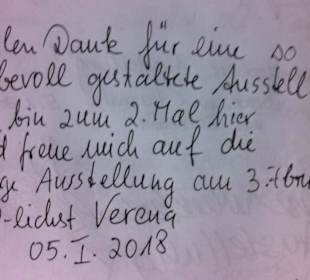 len Dank für eine so
bevoll gestaltete Ausstell
bin zum 2. Mal hier
d freue mich auf die
ge Ausstellung am 3.
-lichst Verena
05. I. 2018